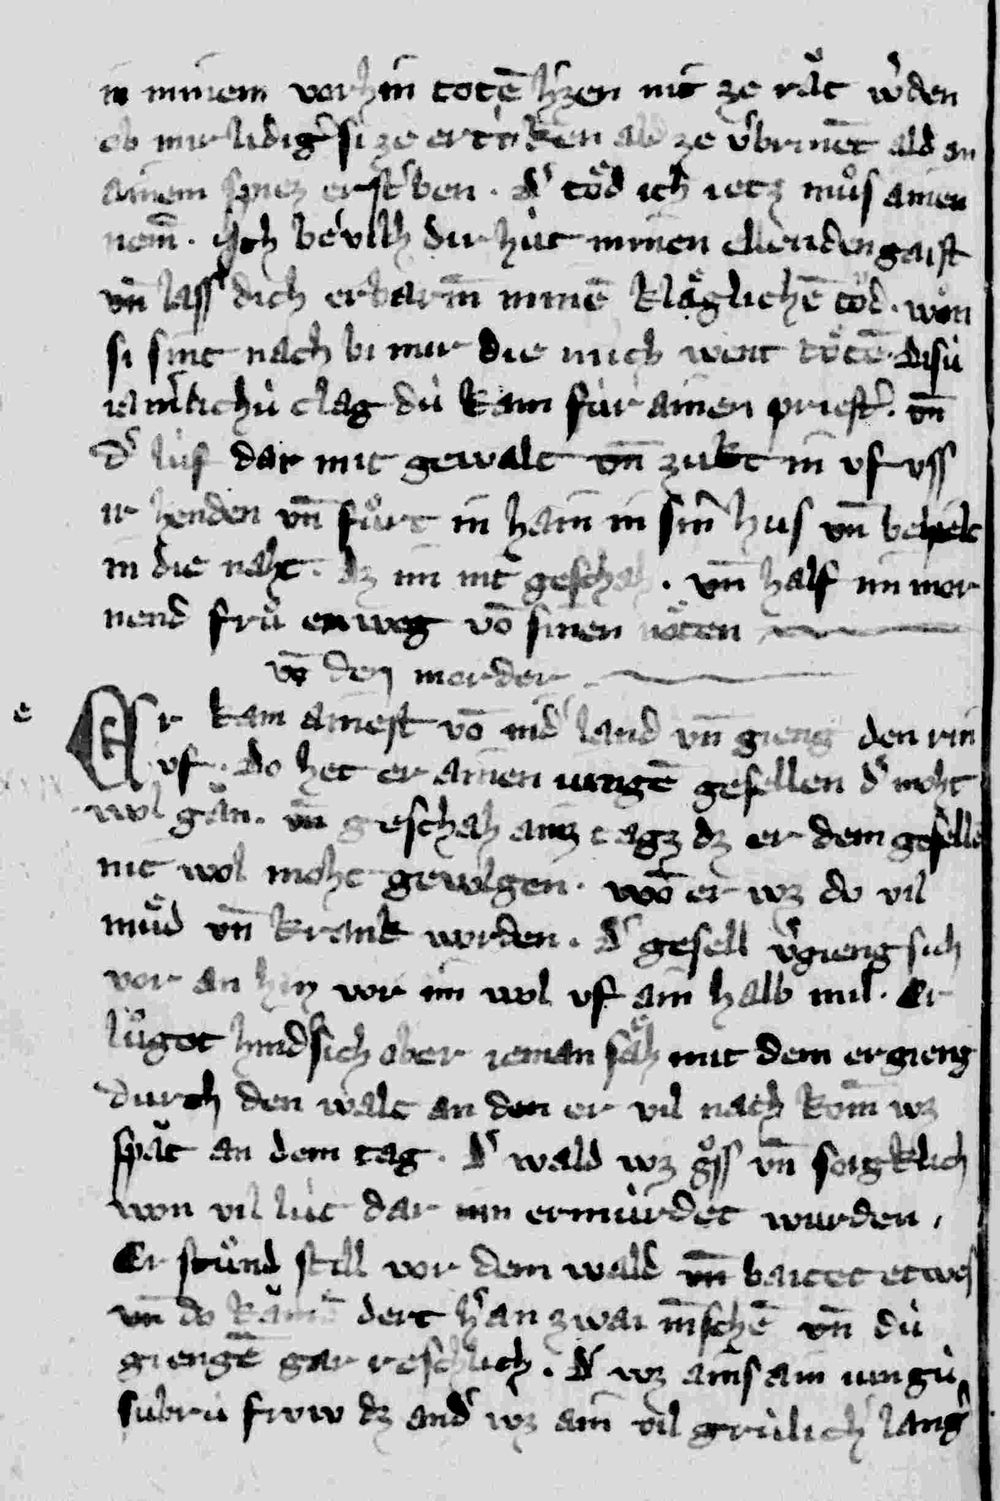 in minem vorhin totē h'zen nit ze răt w'den
ob mir lidig' si ze ert'nken ald ze v'brinnēt ald an
ainem spiez erst'ben . d' tŏd ich ietz mŭs ainen
nem̄ . Ich bevilh dir hùt minen ellenden gaist
vn̄ lass dich erbarm̄ minē klăglichē tŏd . won
si sint nach bi mir die mich went tŏtē . disù
iam'lichù clag dù kam fùr ainen priest' . vn̄
d' lùf dar mit gewalt vn̄ zukt in vf vss
ir henden vn̄ fŭrt in hain in sin hus vn̄ behielt
in die naht . dz im nit geschah . vn̄ half im mor
nend frŭ enweg vō sinen nŏten
vō dem morder
e
Er kam ainest vō nid' land vn̄ gieng den rin
vf . do het er ainen iungē gesellen d' moht
wol gan . vn̄ geschah ainz tagz dz er dem geselle
nit wol moht gevolgen . wō er wz do vil
mŭd vn̄ krank worden . d' gesell v'gieng sich
vor an hin vor im wol vf ain halb mil . Er
lŭget hind'sich ob er ieman săh mit dem er gieng
durch den walt an den er vil nach kom̄ wz
spăt an dem tag . d' wald wz gŏss vn̄ sorgklich
won vil lùt dar inn ermùrdet wurden .
Er stŭnd still vor dem wald vn̄ baitet etwes
vn̄ do kămē dert h'an zwai m̄schē vn̄ dù
giengē gar reschlich . d' wz ains ain iungù
subrù frow dz and' wz ain vil grùlich' lang'